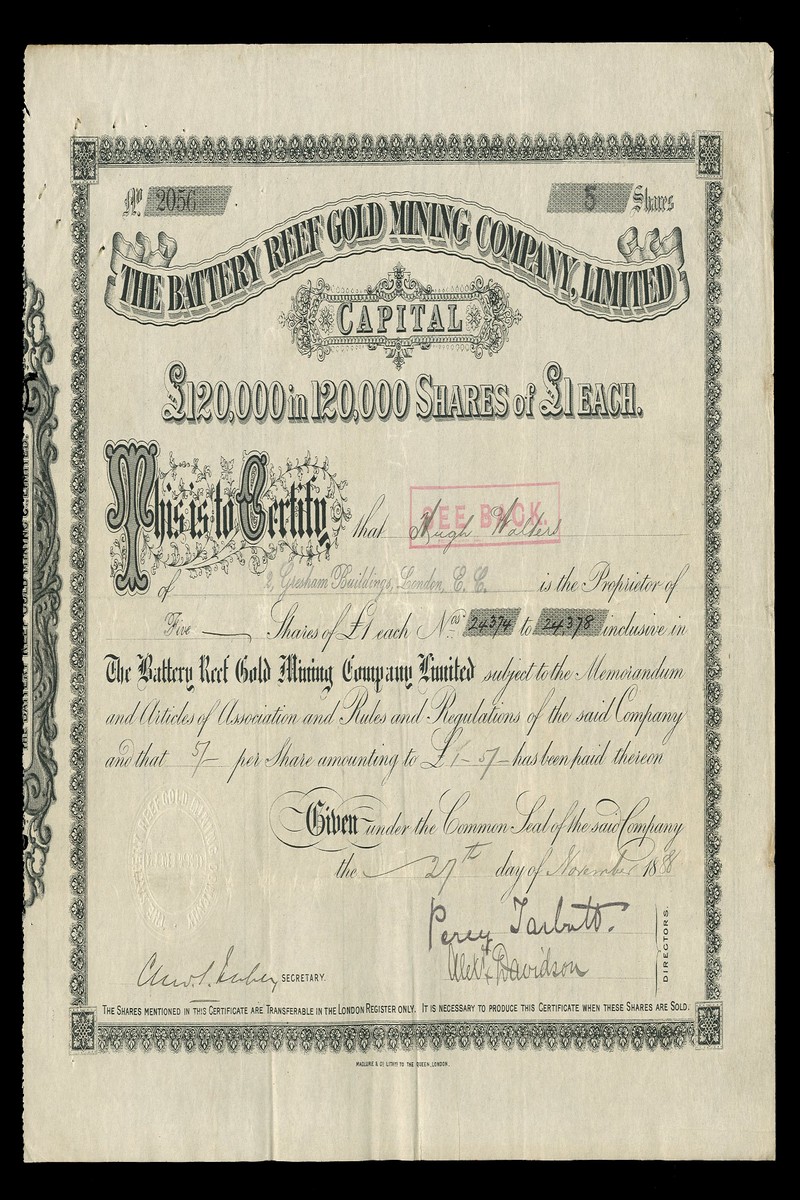 No 2056 5 Shares
THE BATTERY REEF GOLD MINING COMPANY, LIMITED
CAPITAL
£120,000 in 120,000 SHARES of £1 EACH.
SEE BACK.
This is to Certify that Hugh Walters
of 2, Gresham Buildings, London, E. C. is the Proprietor of
Five Shares of £1 each Nos 24374 to 24378 inclusive in
The Battery Reef Gold Mining Company Limited subject to the Memorandum
and Articles of Association and Rules and Regulations of the said Company
and that 5/- per Share amounting to £1-5/- has been paid thereon
Given under the Common Seal of the said Company
the 27th day of November 1888
Percy Tarbutt.
Alexr Davidson
DIRECTORS.
SECRETARY.
THE SHARES MENTIONED IN THIS CERTIFICATE ARE TRANSFERABLE IN THE LONDON REGISTER ONLY. IT IS NECESSARY TO PRODUCE THIS CERTIFICATE WHEN THESE SHARES ARE SOLD.
MACLURE & Co LITHRS TO THE QUEEN, LONDON.